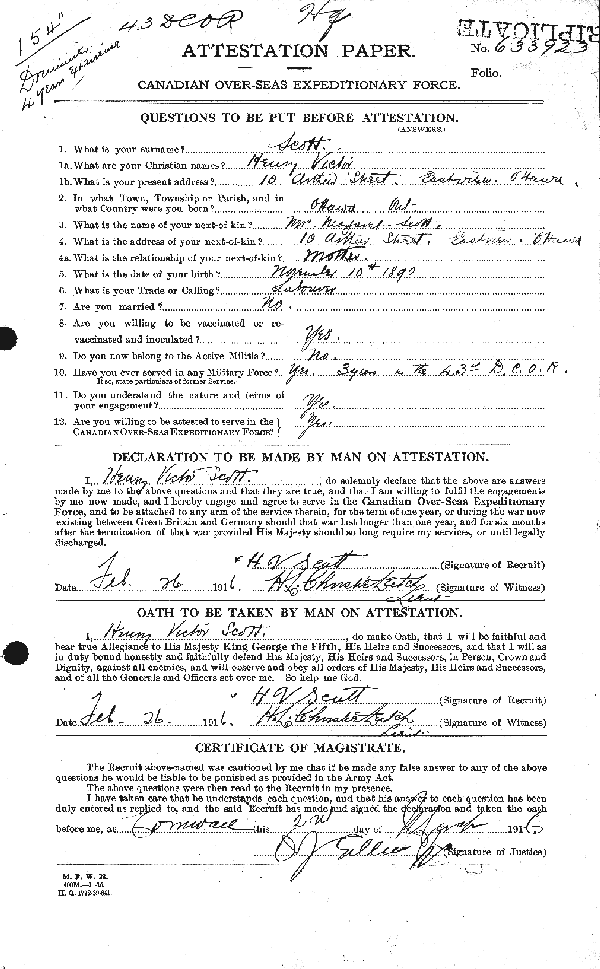 154"
43 DCOR
Hq
Dominion
4 year
TRIPLICATE
ATTESTATION PAPER.
No. 633923
Folio.
CANADIAN OVER-SEAS EXPEDITIONARY FORCE.
QUESTIONS TO BE PUT BEFORE ATTESTATION.
(ANSWERS.)
1. What is your surname? Scott.
1a. What are your Christian names? Henry Victor
1b. What is your present address? 10 Arthur Street. Eastview. Ottawa.
2. In what Town, Township or Parish, and in
what Country were you born? Ottawa Ont.
3. What is the name of your next-of-kin? Mrs Margaret Scott.
4. What is the address of your next-of-kin? 10 Arthur Street. Eastview. Ottawa
4a. What is the relationship of your next-of-kin? Mother.
5. What is the date of your birth? November 10th 1892
6. What is your Trade or Calling? Labourer
7. Are you married? No.
8. Are you willing to be vaccinated or re-
vaccinated and inoculated? Yes.
9. Do you now belong to the Active Militia? No.
10. Have you ever served in any Military Force? Yes. 3 years in the 43rd D.C.O.R.
If so, state particulars of former Service.
11. Do you understand the nature and terms of
your engagement? Yes.
12. Are you willing to be attested to serve in the
CANADIAN OVER-SEAS EXPEDITIONARY FORCE? Yes.
DECLARATION TO BE MADE BY MAN ON ATTESTATION.
I, Henry Victor Scott., do solemnly declare that the above are answers
made by me to the above questions and that they are true, and that I am willing to fulfil the engagements
by me now made, and I hereby engage and agree to serve in the Canadian Over-Seas Expeditionary
Force, and to be attached to any arm of the service therein, for the term of one year, or during the war now
existing between Great Britain and Germany should that war last longer than one year, and for six months
after the termination of that war provided His Majesty should so long require my services, or until legally
discharged.
H V Scott (Signature of Recruit)
Date Feb 26 1916. (Signature of Witness)
Lieut
OATH TO BE TAKEN BY MAN ON ATTESTATION.
I, Henry Victor Scott., do make Oath, that I will be faithful and
bear true Allegiance to His Majesty King George the Fifth, His Heirs and Successors, and that I will as
in duty bound honestly and faithfully defend His Majesty, His Heirs and Successors, in Person, Crown and
Dignity, against all enemies, and will observe and obey all orders of His Majesty, His Heirs and Successors,
and of all the Generals and Officers set over me. So help me God.
H V Scott (Signature of Recruit)
Date Feb. 26. 1916. (Signature of Witness)
Lieut
CERTIFICATE OF MAGISTRATE.
The Recruit above-named was cautioned by me that if he made any false answer to any of the above
questions he would be liable to be punished as provided in the Army Act.
The above questions were then read to the Recruit in my presence.
I have taken care that he understands each question, and that his answer to each question has been
duly entered as replied to, and the said Recruit has made and signed the declaration and taken the oath
before me, at Cornwall this day of 1916
(Signature of Justice)
M. F. W. 23.
400M.
H. Q. 1772-39-841